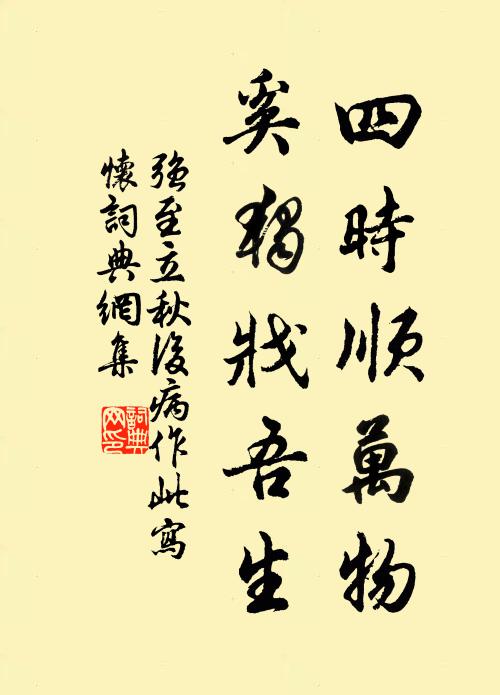 四時順萬物
奚獨戕吾生
强至立秋後病作此寫
懷詞典網集
詞典
网印